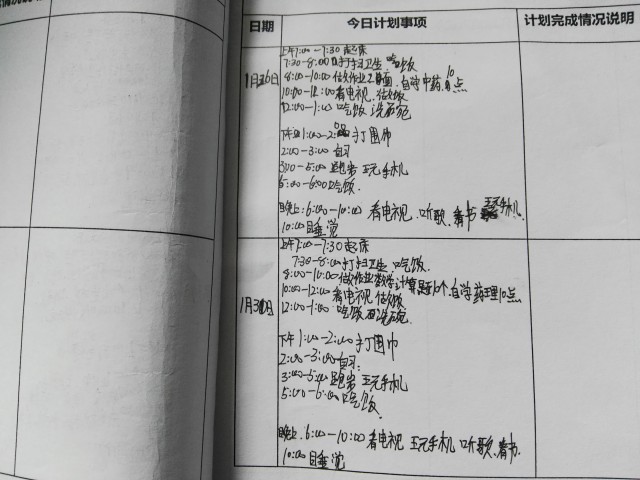 日期 今日计划事项 计划完成情况说明
1月26日
上午7:00-7:30 起床
7:30-8:00 打扫卫生 吃饭
8:00-10:00 做作业 面，自学中药 10点
10:00-12:00 看电视，做饭
12:00-1:00 吃饭 洗碗
下午 1:00-2:00 打围巾
2:00-3:00 自习
3:00-5:00 跑步 玩手机
5:00-6:00 吃饭
晚上:6:00-10:00 看电视、听歌、看书 玩手机
10:00 睡觉
1月31日
上午7:00-7:30 起床
7:30-8:00 打扫卫生 吃饭
8:00-10:00 做作业数学计算题 个，自学药理10点
10:00-12:00 看电视 做饭
12:00-1:00 吃饭 洗碗
下午 1:00-2:00 打围巾
2:00-3:00 自习
3:00-5:00 跑步 玩手机
5:00-6:00 吃饭
晚上:6:00-10:00 看电视 玩手机 听歌、看书
10:00 睡觉